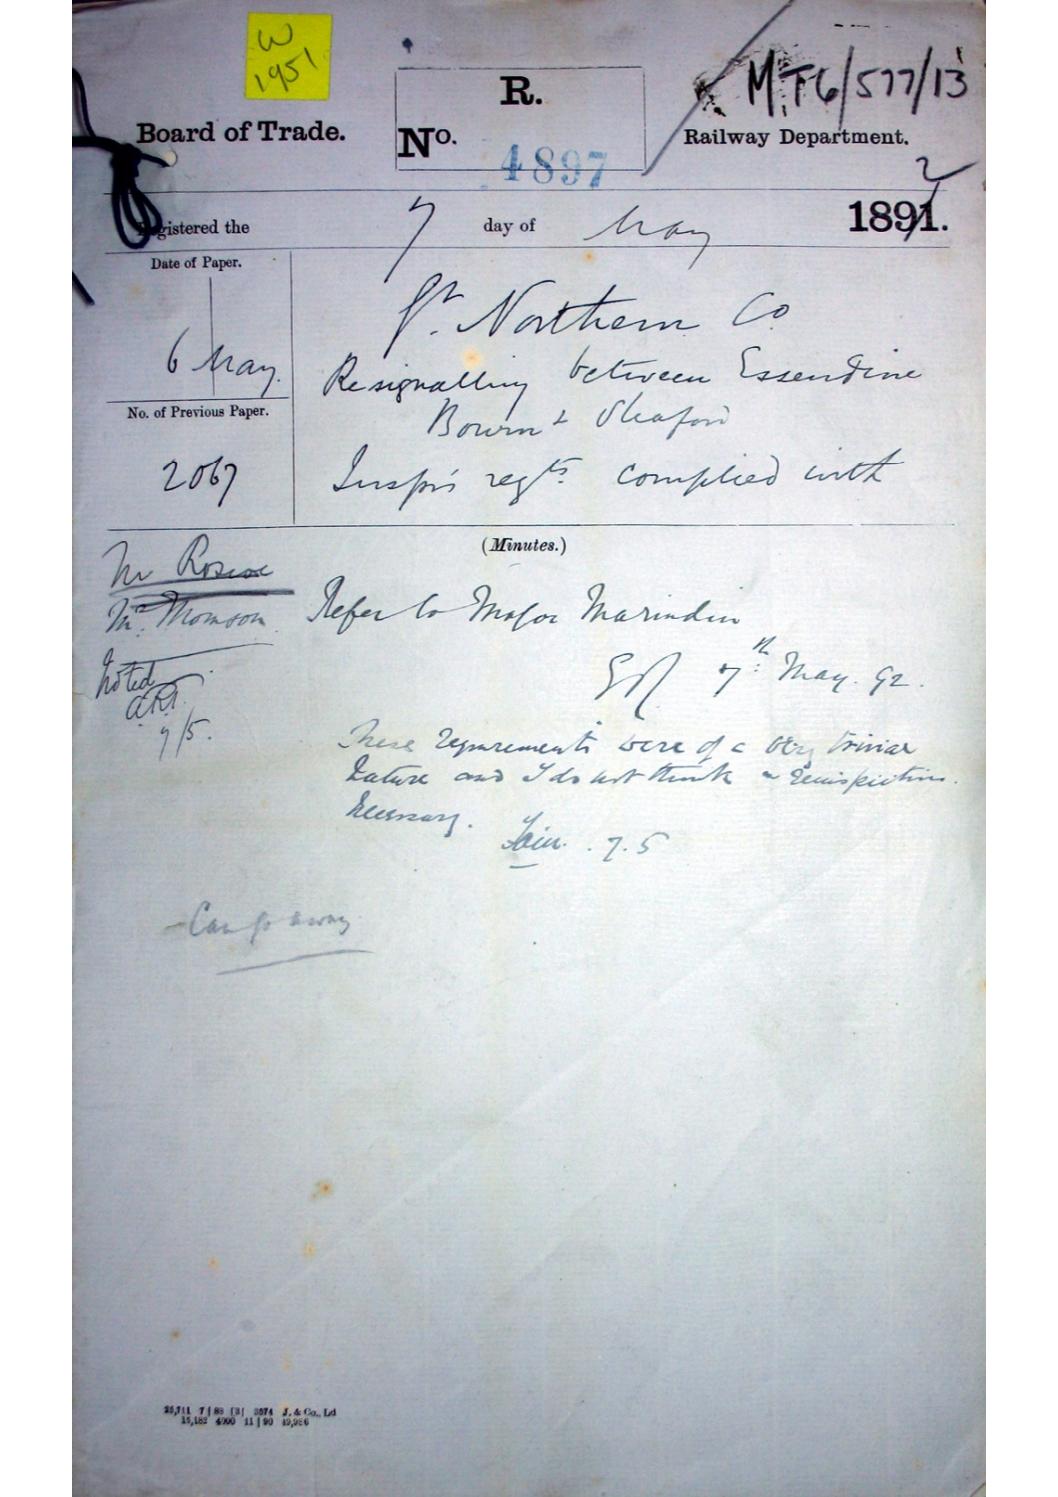 W
1951
MT6/577/13
R.
Board of Trade.
No.
4897
Railway Department.
Registered the 7 day of May 1892.
Date of Paper.
6 May.
Gt. Northern Co
Resignalling between Essendine
Bourn & Sleaford
No. of Previous Paper.
2067
Insprs reqts. complied with
(Minutes.)
Mr Roscoe
Mr. Thomson
Refer to Major Marindin
7th May. 92.
Noted
ART.
7/5.
These requirements were of a very trivial
nature and I do not think a reinspection
necessary.
7.5
Can go away
25,711 7|88 [3] 3574 J. & Co., Ld
15,182 4000 11|90 49,986